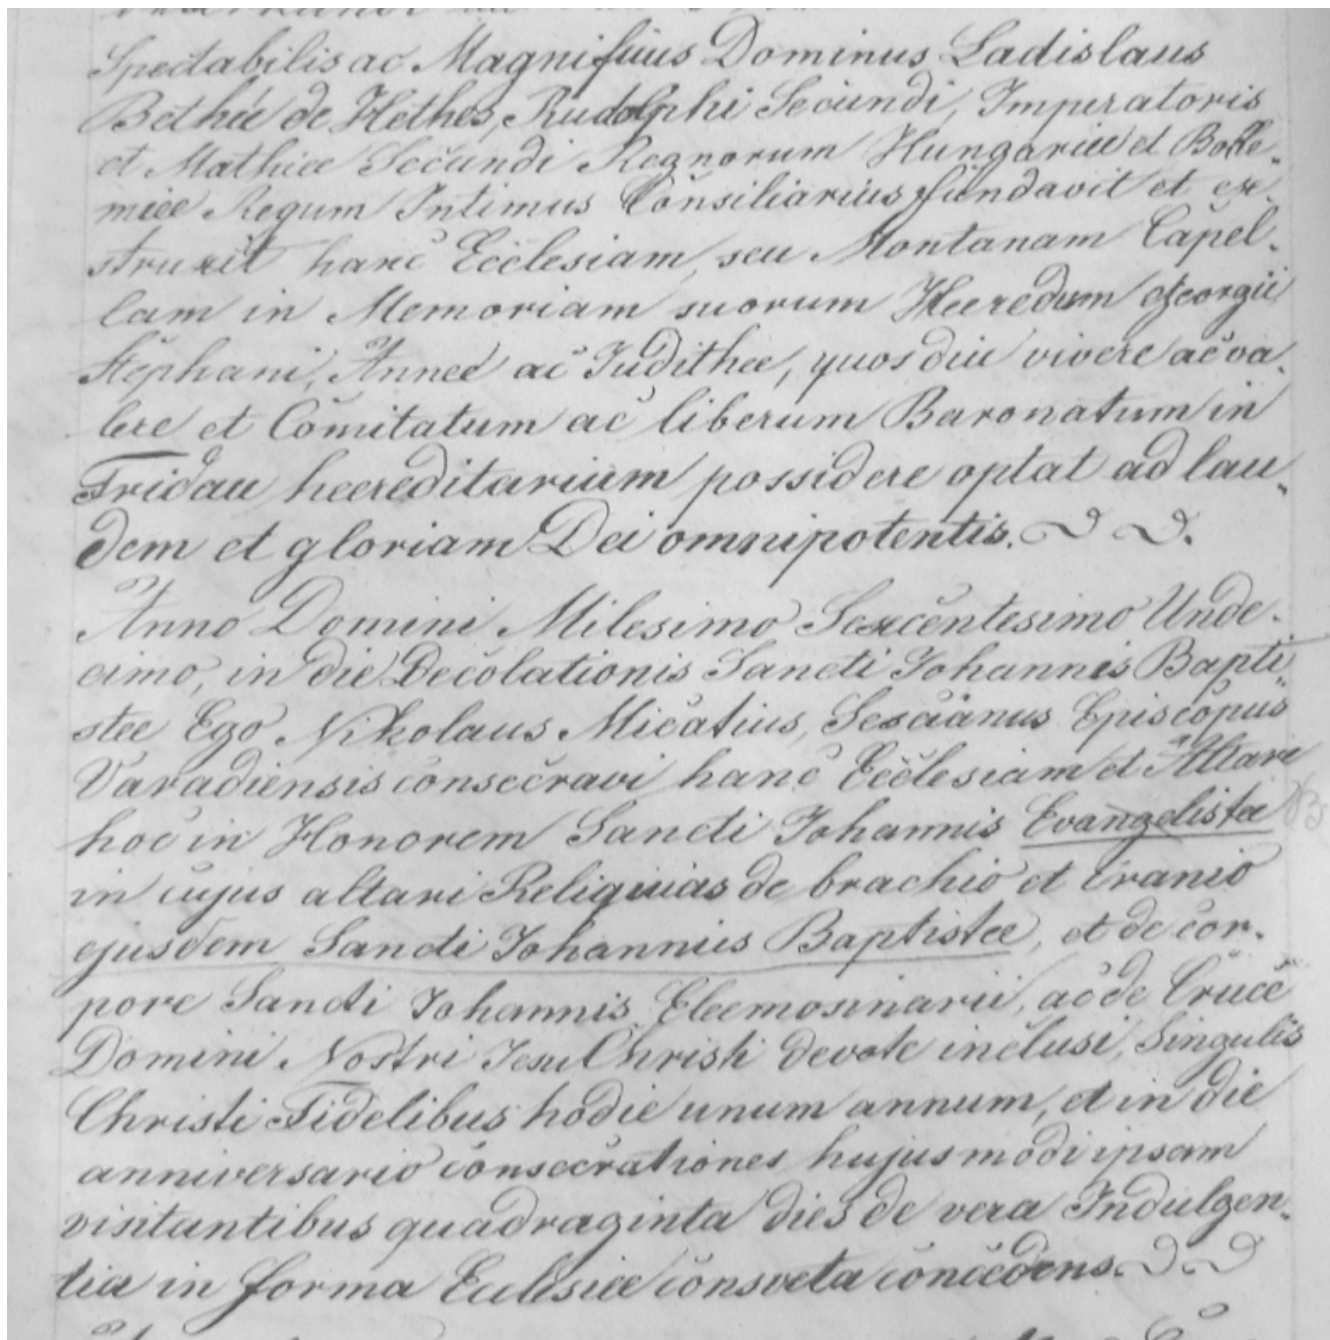 Spectabilis ac Magnificus Dominus Ladislaus
Bethee de Hethes, Rudolphi Secundi, Imperatoris
et Mathiae Secundi Regnorum Hungariae et Bohe-
miae Regum Intimus Consiliarius fundavit et ex-
struxit hanc Ecclesiam, seu Montanam Capel-
lam in Memoriam suorum Haeredum Georgii
Stephani, Annae ac Judithae, quos diu vivere ac va-
lere et Comitatum ac liberum Baronatum in
Fridau haereditarium possidere optat ad lau-
dem et gloriam Dei omnipotentis.
Anno Domini Milesimo Sexcentesimo Unde-
cimo, in die Decolationis Sancti Johannis Bapti-
stae Ego Nikolaus Micatius, Episcopus
Varadiensis consecravi hanc Ecclesiam et Altare
hoc in Honorem Sancti Johannis Evangelistae
in cujus altari Reliquias de brachio et Cranio
ejusdem Sancti Johannis Baptistae, et de cor-
pore Sancti Johannis Eleemosinarii, ac de Cruce
Domini Nostri Jesu Christi devote inclusi, Singulis
Christi Fidelibus hodie unum annum, et in die
anniversario consecrationes hujusmodi ipsam
visitantibus quadraginta dies de vera Indulgen-
tia in forma Eclesiae consveta concedens.